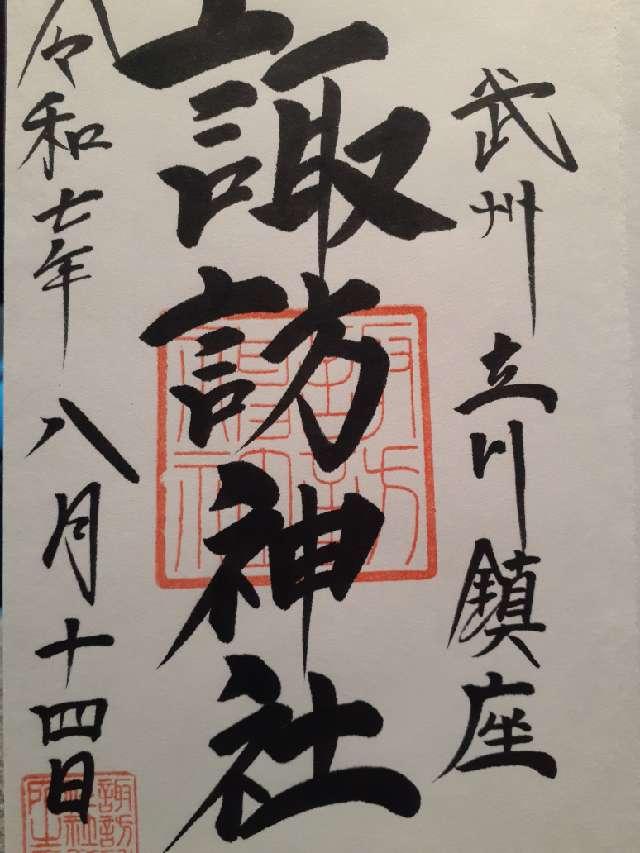 武州 立川鎮座
諏訪神社
令和七年 八月十四日